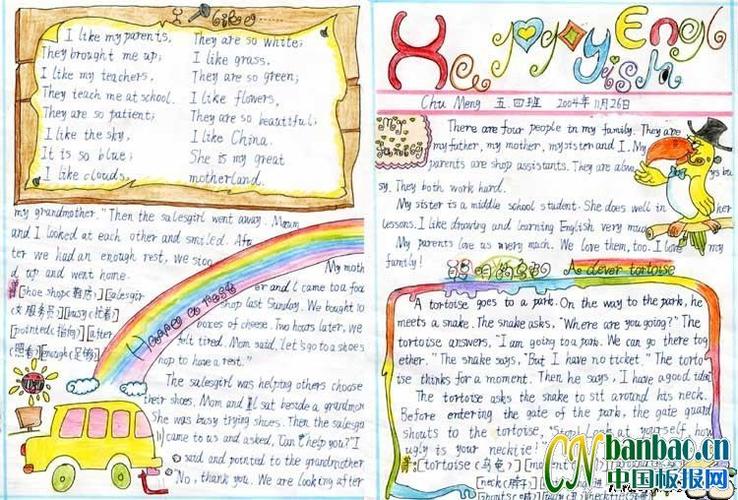 I like
I like my parents,
They brought me up;
I like my teachers,
They teach me at school.
They are so patient;
I like the sky,
It is so blue;
I like clouds,
They are so white;
I like grass,
They are so green;
I like flowers,
They are so beautiful;
I like China.
She is my great
motherland.
my grandmother." Then the salesgirl went away. Mum
and I looked at each other and smiled. Af
ter we had an enough rest, we stoo
d up and went home.
[shoe shop(鞋店)][salesgir
l(女服务员)][busy(忙着)]
[pointed(指向)][after
(照看)][enough(足够)]
Have a rest
My moth
er and I came to a foo
shop last Sunday. We bought 10
boxes of cheese. Two hours later, we
felt tired. Mom said, Let's go to a shoes
hop to have a rest."
The salesgirl was helping others choose
their shoes. Mom and I sat beside a grandmom
She was busy trying shoes. Then the salesgi
came to us and asked, Can I help you?" I
said and pointed to the grandmother
No, thank you. We are looking after
Happy English
Chu Meng 五四班 2004年11月26日
My
family
There are four people in my family. They are
my father, my mother, my sister and I. My
parents are shop assistants. They are alw ys bu
sy. They both work hard.
My sister is a middle school student. She does well in her
lessons. I like drawing and learning English very mu
My parents love us very much. We love them, too. I love my
family!
聪明的乌龟 A clever tortoise
A tortoise goes to a park. On the way to the park, he
meets a snake. The snake asks, "Where are you going?" The
tortoise answers, "I am going to a park. We can go there tog
ether." The snake says, "But I have no ticket." The torto
ise thinks for a moment. Then he says, I have a good idea
The tortoise asks the snake to sit around his neck.
Before entering the gate of the park, the gate guard
shouts to the tortoise, "Stop! Look at yourself, how
ugly is your necktie!"
[tortoise(乌龟)][moment(
[neck(脖子)]
CN banbao.cn
中国板报网